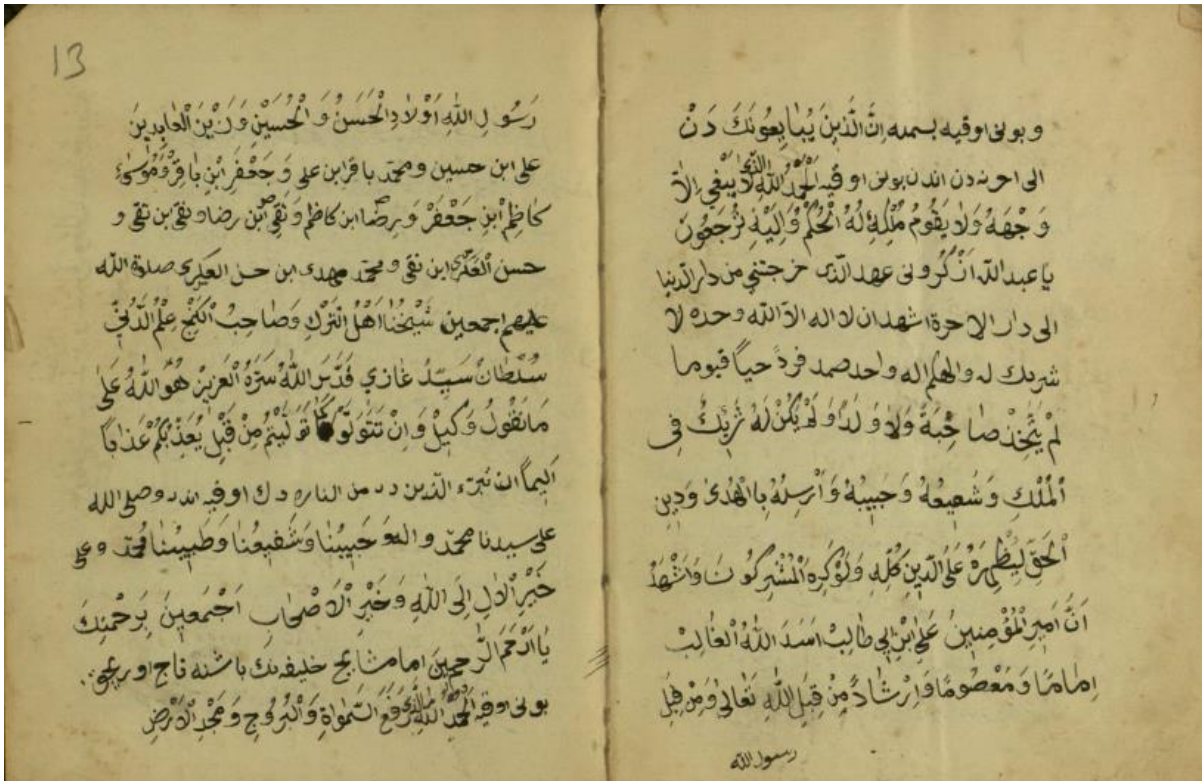 و بونی اوقیه بسمله اِنَّ الَّذِینَ یُبَایِعُونَكَ دَنْ
الی اخرنه دن اندن بونی اوقیه اَلْحَمْدُ لِلّٰهِ الَّذِی لَا یَبْقٰی اِلَّا
وَجْهَهُ وَلَا یَقُومُ مُلْكِهِ لَهُ الْحُكْمُ وَاِلَیْهِ تُرْجَعُونَ
یا عبد اللّه اذْكُرونی عهد الّذی خرجتنی من دار الدنیا
الی دار الاخرة اشهد ان لا اله الا اللّه وحده لا
شریك له والهكم اله واحد صمد فردً حیاً قیوما
لَمْ یَتَّخِذْ صَاحِبَةً وَلَا وَلَدًا وَلَمْ یَكُنْ لَهُ شَرِیكٌ فِی
الْمُلْكِ وَشَفِیعُهُ وَحَبِیبُهُ وَاَرْسِلُهُ بِالْهُدٰی وَدِینِ
الْحَقِّ لِیُظْهِرَهُ عَلَی الدِّینِ كُلِّهِ وَلَوْ كَرِهَ الْمُشْرِكُونَ وَاَشْهَدُ
اَنَّ اَمِیرَ الْمُؤْمِنِینَ عَلِی ابْنِ اَبِی طَالِبْ اَسَدَ اللّٰهُ الْغَالِبْ
اِمَامًا وَمَعْصُومًا وَاِرْشَادً مِنْ قِبَلِ اللّٰهِ تَعَالٰی وَمِنْ قِبَلِ
رسول اللّه
13
رَسُولِ اللّٰهِ اَوْلَادِ الْحَسَنُ وَالْحُسَیْنِ وَزَیْنَ الْعَابِدِینَ
علی ابن حسین ومحمّد باقر ابن علی وَجَعْفَرِ ابْنِ بَاقِرْ وَمُوسٰیءِ
كَاظِمْ ابْنِ جَعْفَرْ وَرِضَا ابن كاظم وَتَقِی ابْنِ رضا ونقی ابن تقی و
حسن الْعَسْكَرِی ابن نقی ومحمّد مهدی ابن حسن العسكری صلاوة اللّه
علیهم اجمعین شَیْخُنَا اَهْلُ التَّرْكِ وَصَاحِبُ الْكَنْجِ عِلْمُ الَّدُنِّ
سُلْطَانْ سَیِّدْ غَازِی قَدَّسَ اللّٰهُ سِرَّهُ الْعَزِیزْ هُوَ اللّٰهُ عَلٰی
مَا نَقُولُ وَكِیلْ وَاِنْ تَتَوَلَّوْا كَمَا تَوَلَّیْتُمْ مِنْ قَبْلِ یُعَذِّبْكُمْ عَذَابًا
اَلِیمًا الذین دن اوقیه اندن وصلی اللّه
علی سیدنا محمّد و حَبِیبُنَا وَشَفِیعُنَا وَطَبِیبُنَا مُحَمَّدْ وعلی
خَیْرِ الْاٰلِ اِلَی اللّٰهِ وَخَیْرِ الْاَصْحَابِ اَجْمَعِینَ بِرَحْمَتِكَ
یَا اَرْحَمَ الرَّحِمِینَ خلیفه نك باشنه تاج
بونی اوقیه اَلْحَمْدُ لِلّٰهِ الَّذِی رَفَعَ السَّمٰوَاةِ وَالْبُرُوجِ وَ الْاَرْضِ